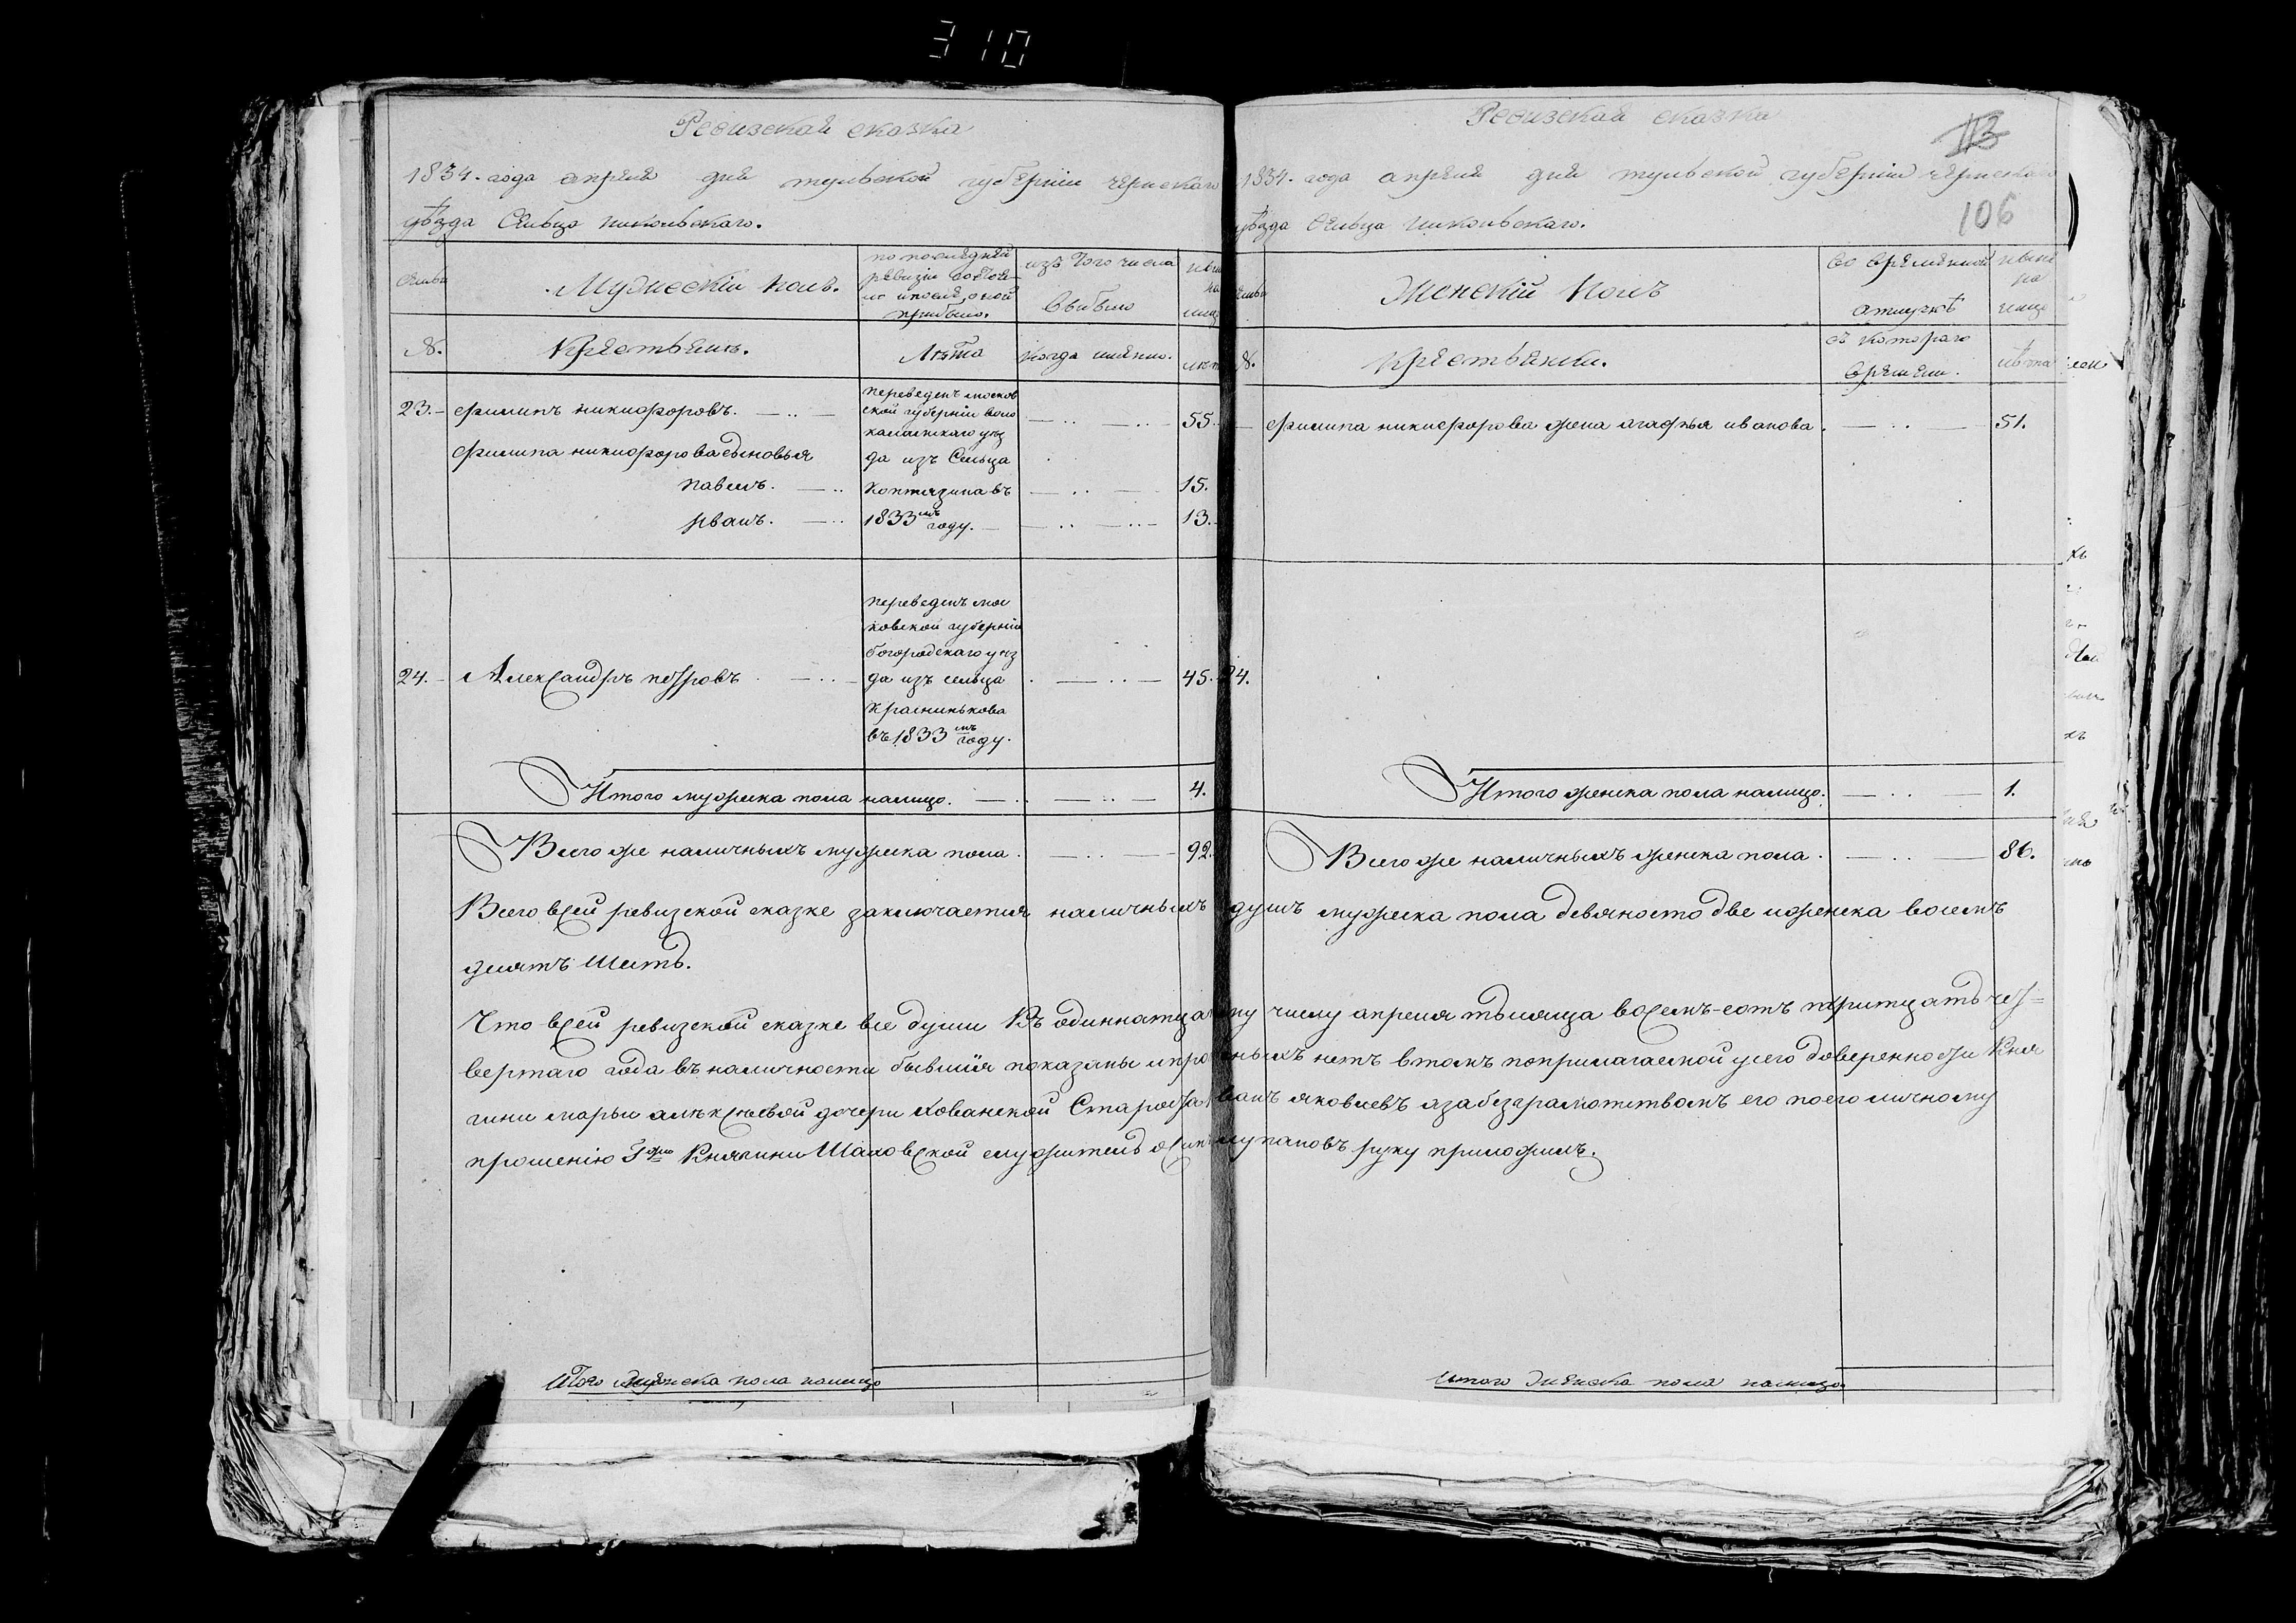 310
Ревизская сказка
1834. года апреля дня тульской губернiи чернскаго
уѣзда Сельца никольскаго.
Семьи
Мужескiй полъ.
по последней
ревизiи состоя-
ло и после оной
прибыло.
изъ того числа
выбыло
ныне
на
лицо
№.
Крестьяне.
Лѣта
когда имянно.
лета
23. филипъ никифоровъ.
переведенъ москов
ской губернiи воло
каламскаго уез
да изъ Сельца
Контязина въ
1833мъ году.
55.
филипа никифорова сыновья
павелъ. 15.
иванъ. 13.
24. Александръ петровъ
переведенъ мос
ковской губернiи
богородскаго уез
да изъ сельца
Красинькова
въ 1833мъ году.
45.
Итого мужеска пола налицо. 4.
Всего же наличныхъ мужеска пола. 92.
Ревизская сказка
113
1834. года апреля дня тульской губернiи чернскаго
106
уѣзда Сельца никольскаго.
Семьи
Женскiй полъ
во временной
отлучкѣ
ныне
на
лице
№.
крестьянки.
съ котораго
времени.
лѣта
филипа никифорова жена агафья иванова. 51.
24.
Итого женска пола налицо. 1.
Всего же наличныхъ женска пола. 86.
Всего всей ревизской сказке заключается наличныхъ душъ мужеска пола девяносто две иженска восемъ
десятъ шесть.
Что всей ревизской сказке все души Въ одиннатцатому числу апреля мѣсяца восемъ-сотъ тритцать чет=
вертаго года въ наличности бывшiя показаны ипрописныхъ нетъ втомъ поприлагаемой усего доверенности Кня
гини марьи алѣксѣевой дочери Хованской Староста иванъ яковлевъ азабезграмотствомъ его поего личному
прошенiю Гжи Княгини Шаховской служитель руку приложилъ.
Итого мужеска пола налицо
Итого женска пола налицо.